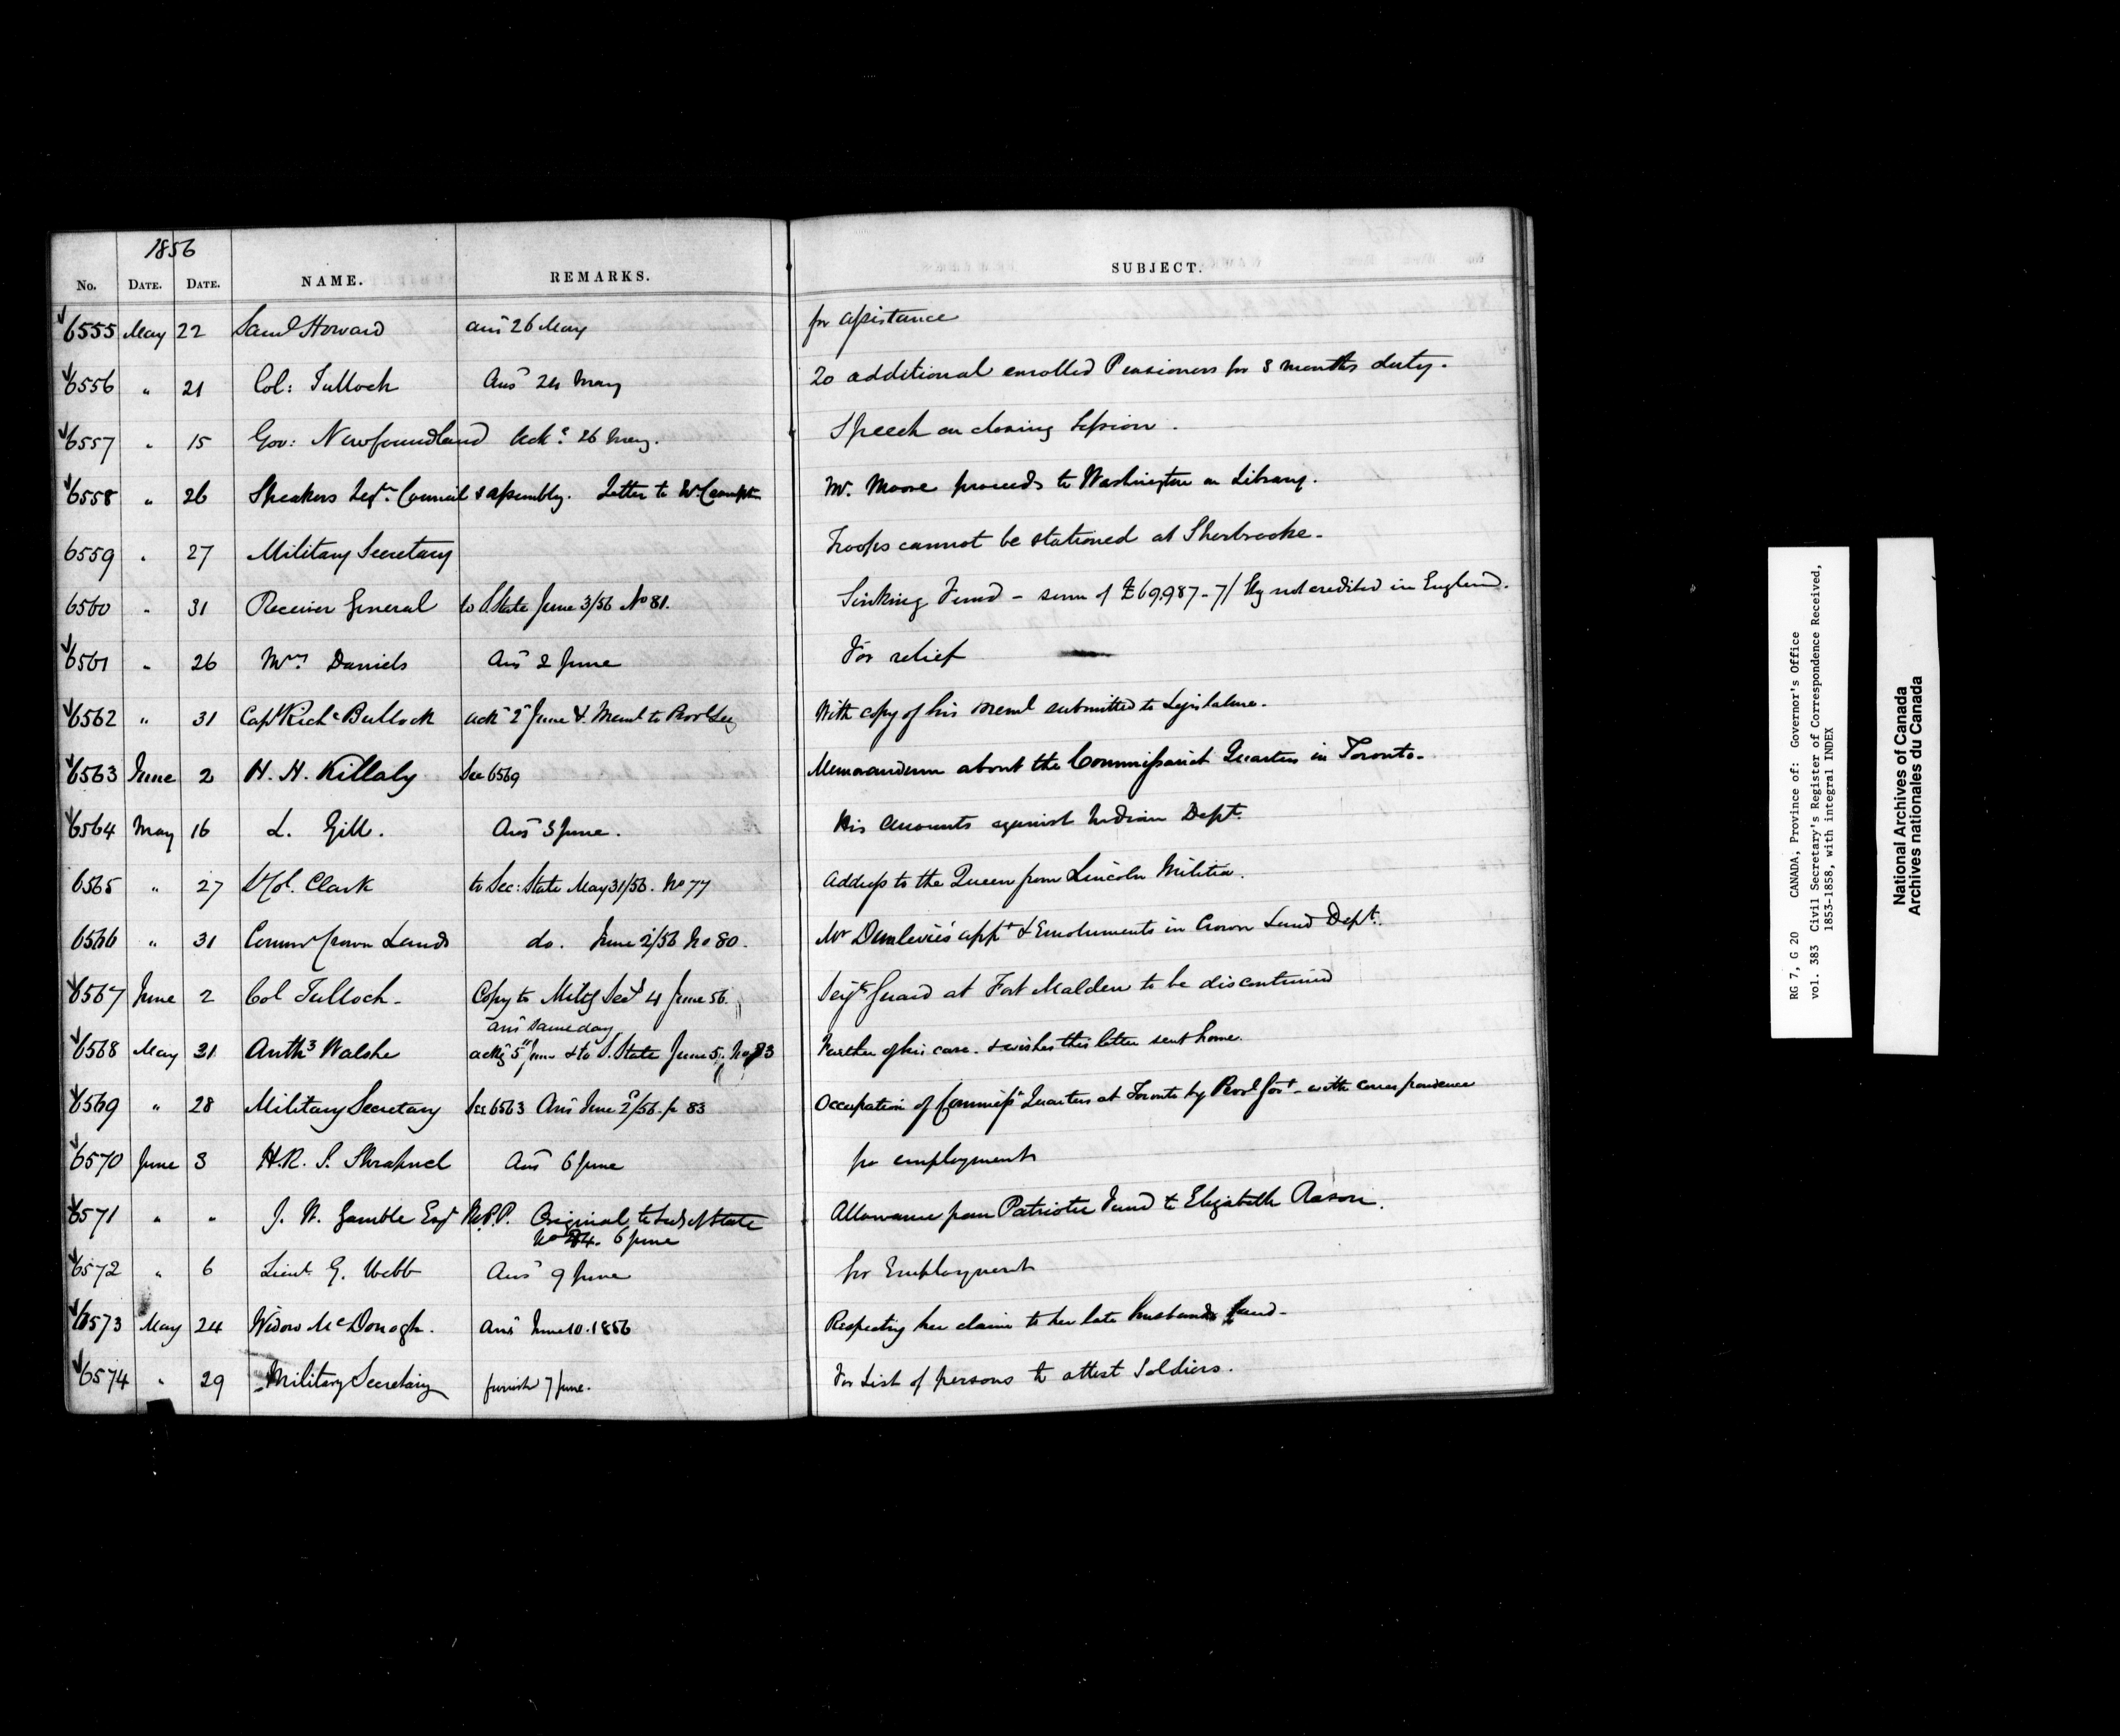 1856
No. DATE. DATE. NAME. REMARKS. SUBJECT.
6555 May 22 Saml Howard ansd 26 May for assistance
6556 " 21 Col: Tulloch Ansd 24 May 20 additional enrolled Pensioners for 3 months duty.
6557 " 15 Gov: Newfoundland Ackd 26 May. Speech on closing Session.
6558 " 26 Speakers Legve Council & assembly. Letter to Mr Crampton Mr. Moore proceeds to Washington on Library.
6559 " 27 Military Secretary Troops cannot be stationed at Sherbrooke.
6560 " 31 Receiver General to S. State June 3/56 No 81. Sinking Fund - sum of £69,987-7/ Stg not credited in England.
6561 " 26 Mrs Daniels Ansd 2 June For relief
6562 " 31 Capt Richd Bullock ackd 2d June & Meml to Provl Secy With copy of his meml submitted to Legislature.
6563 June 2 H. H. Killaly See 6569 Memorandum about the Commissariat Quarters in Toronto.
6564 May 16 L. Gill. Ansd 3 June. His Accounts against Indian Dept.
6565 " 27 Lt Col. Clark to Sec: State May 31/56. No 77 Address to the Queen from Lincoln Militia.
6566 " 31 Commr Crown Lands do. June 2/56 No 80. Mr appt & Emoluments in Crown Land Dept.
6567 June 2 Col Tulloch. Copy to Mily Secy 4 June 56. Sergts Guard at Fort Malden to be discontinued
ansd same day
6568 May 31 Anthy Walshe ackd 5th June & to S. State June 5, No 83 Further of his case. & wishes this letter sent home.
6569 " 28 Military Secretary See 6563 Ansd June 2d/56. p 83 Occupation of Commisst Quarters at Toronto by Provl Govt - with correspondence
6570 June 3 H.R. S. Shrapnel Ansd 6 June for employment
6571 " " J. W. Gamble Esqr M.P.P. Original to Sec of State Allowance from Patriotic Fund to Elizabeth Aason.
No 84. 6 June
6572 " 6 Lieut G. Webb Ansd 9 June for Employment
6573 May 24 Widow McDonogh. Ansd June 10. 1856 Respecting her claim to her late husbands land.
6574 " 29 Military Secretary furnishd 7 June. For List of persons to attest Soldiers.
RG 7, G 20 CANADA, Province of: Governor's Office
vol. 383 Civil Secretary's Register of Correspondence Received,
1853-1858, with integral INDEX
National Archives of Canada
Archives nationales du Canada